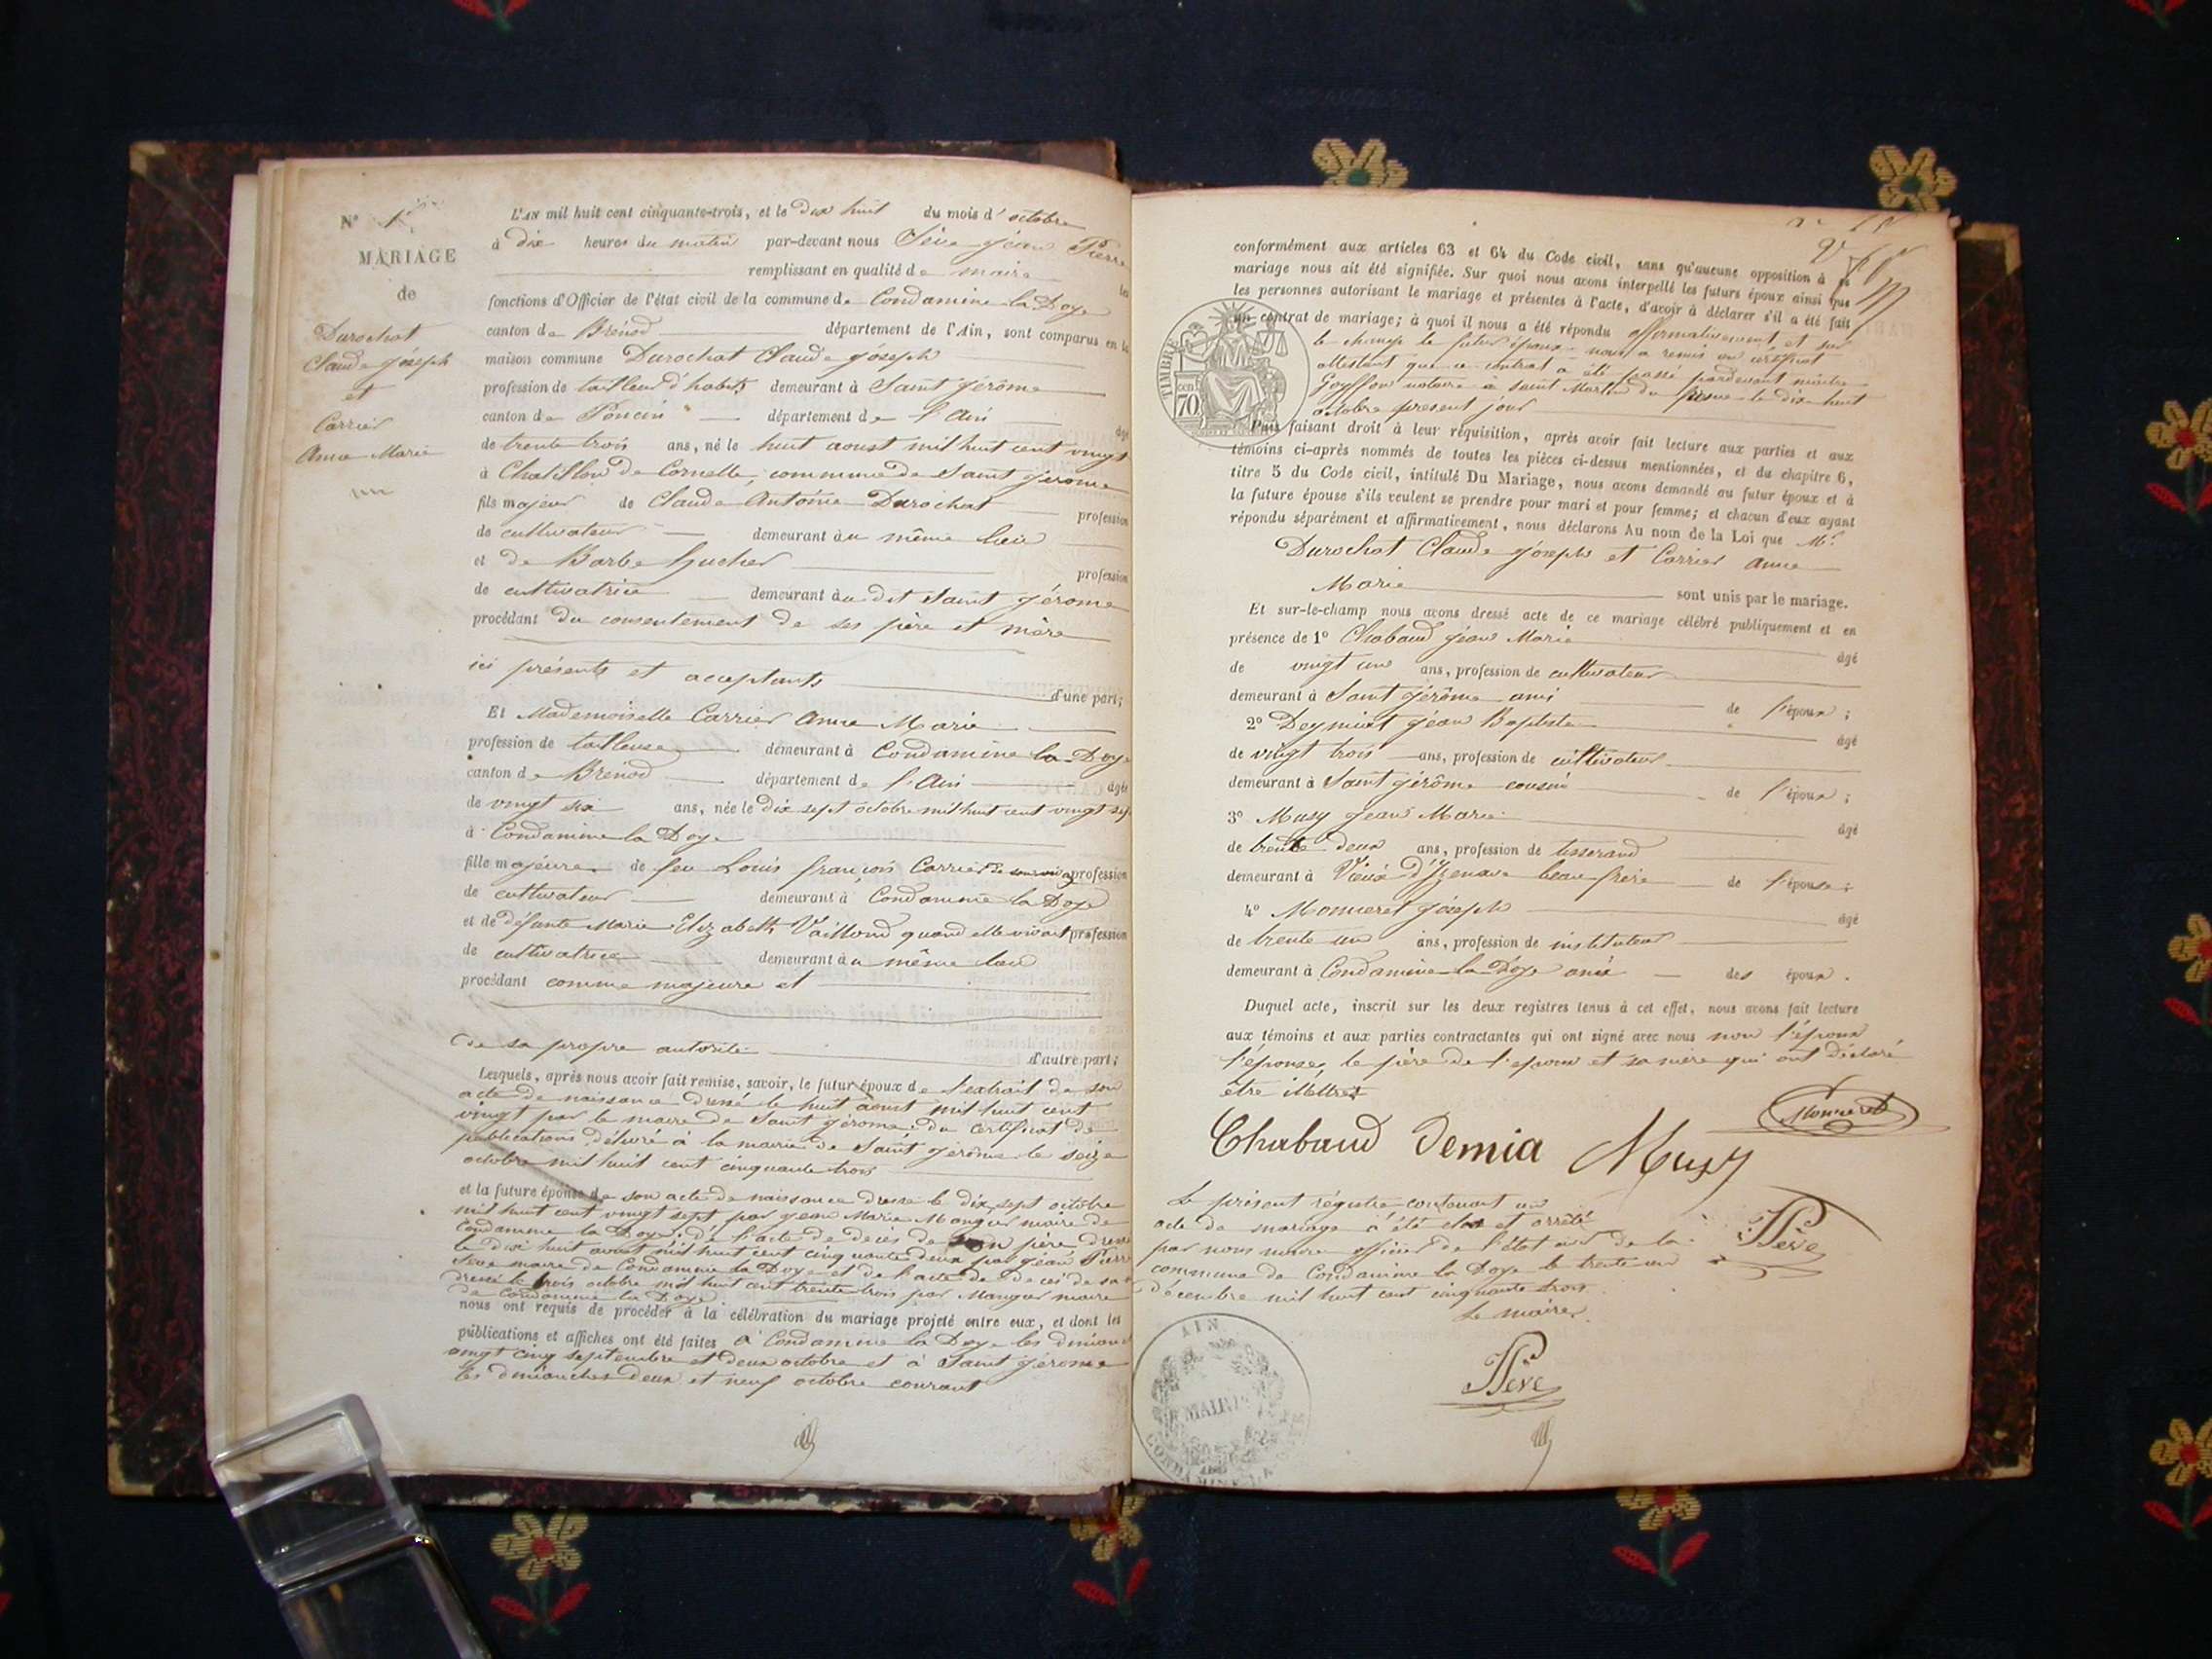 N° 1
MARIAGE
de
Durochat
Claude Joseph
et
Carrier
Anne Marie
L'AN mil huit cent cinquante-trois, et le dix huit du mois d'octobre
à dix heures du matin par-devant nous Sève Jean Pierre
remplissant en qualité de maire les
fonctions d'Officier de l'état civil de la commune de Condamine la Doye
canton de Brénod département de l'Ain, sont comparus en la
maison commune Durochat Claude Joseph
profession de tailleur d'habits demeurant à Saint Jérôme
canton de Poncin département de l'Ain âgé
de trente trois ans, né le huit aoust mil huit cent vingt
à Chatillon de Cornelle, commune de Saint Jérome
fils majeur de Claude Antoine Durochat profession
de cultivateur demeurant àu même lieu
et de Barbe Hucher profession
de cultivatrice demeurant àu dit Saint Jérome
procédant du consentement de ses père et mère
ici présents et acceptants d'une part;
Et Mademoiselle Carrier Anne Marie
profession de tailleuse demeurant à Condamine la Doye
canton de Brénod département de l'Ain âgée
de vingt six ans, née le dix sept octobre mil huit cent vingt sept
à Condamine la Doye
fille majeure de feu Louis françois Carrier de son vivant profession
de cultivateur demeurant à Condamine la Doye
et de défunte Marie Elizabeth Vaillond quand elle vivait profession
de cultivatrice demeurant àu même lieu
procédant comme majeure et
de sa propre autorité d'autre part;
Lesquels, après nous avoir fait remise, savoir, le futur époux de l'extrait de son
acte de naissance dressé le huit aoust mil huit cent
vingt par le maire de Saint Jérome: du certificat de
publications délivré à la mairie de Saint Jérôme le seize
octobre mil huit cent cinquante trois
et la future épouse de son acte de naissance dressé le dix sept octobre
mil huit cent vingt sept par Jean Marie Mangur maire de
Condamine la Doye; de l'acte de décès de son père dressé
le dix huit aoust mil huit cent cinquante deux par Jean Pierre
Sève maire de Condamine la Doye et de l'acte de décès de sa
dressé le trois octobre mil huit cent trente trois par Mangur maire
de Condamine la Doye
nous ont requis de procéder à la célébration du mariage projeté entre eux, et dont les
publications et affiches ont été faites à Condamine la Doye les dimanches
vingt cinq septembre et deux octobre et à Saint Jérome
les dimanches deux et neuf octobre courant
conformément aux articles 63 et 64 du Code civil, sans qu'aucune opposition à ce
mariage nous ait été signifiée. Sur quoi nous avons interpellé les futurs époux ainsi que
les personnes autorisant le mariage et présentes à l'acte, d'avoir à déclarer s'il a été fait
un contrat de mariage; à quoi il nous a été répondu affirmativement et sur
le champ le futur époux nous a remis un certificat
attestant que ce contrat a été passé pardevant maître
Goyffon notaire à Saint Martin du fresne le dix huit
octobre présent jour
TIMBRE
CEN 70
Puis faisant droit à leur réquisition, après avoir fait lecture aux parties et aux
témoins ci-après nommés de toutes les pièces ci-dessus mentionnées, et du chapitre 6,
titre 5 du Code civil, intitulé Du Mariage, nous avons demandé au futur époux et à
la future épouse s'ils veulent se prendre pour mari et pour femme; et chacun d'eux ayant
répondu séparément et affirmativement, nous déclarons Au nom de la Loi que Mr
Durochat Claude Joseph et Carrier Anne
Marie sont unis par le mariage.
Et sur-le-champ nous avons dressé acte de ce mariage célébré publiquement et en
présence de 1° Chabaud Jean Marie âgé
de vingt un ans, profession de cultivateur
demeurant à Saint Jérôme ami de l'époux;
2° Jean Baptiste âgé
de vingt trois ans, profession de cultivateur
demeurant à Saint Jérôme cousin de l'époux;
3° Musy Jean Marie âgé
de trente deux ans, profession de tisserand
demeurant à Vieux d'Izenave beau frère de l'épouse;
4° Monneret Joseph âgé
de trente un ans, profession de instituteur
demeurant à Condamine la Doye ami des époux.
Duquel acte, inscrit sur les deux registres tenus à cet effet, nous avons fait lecture
aux témoins et aux parties contractantes qui ont signé avec nous non l'époux
l'épouse, le père de l'époux et sa mère qui ont déclaré
être illettrés
Monneret
Chabaud Demia Musy
Le présent régistre contenant un
acte de mariage a été clos et arrêté
par nous maire officier de l'état civil de la
commune de Condamine la Doye le trente un
décembre mil huit cent cinquante trois.
Le maire
JPSève
JPSève
AIN
MAIRIE
CONDAMINE LA DOYE